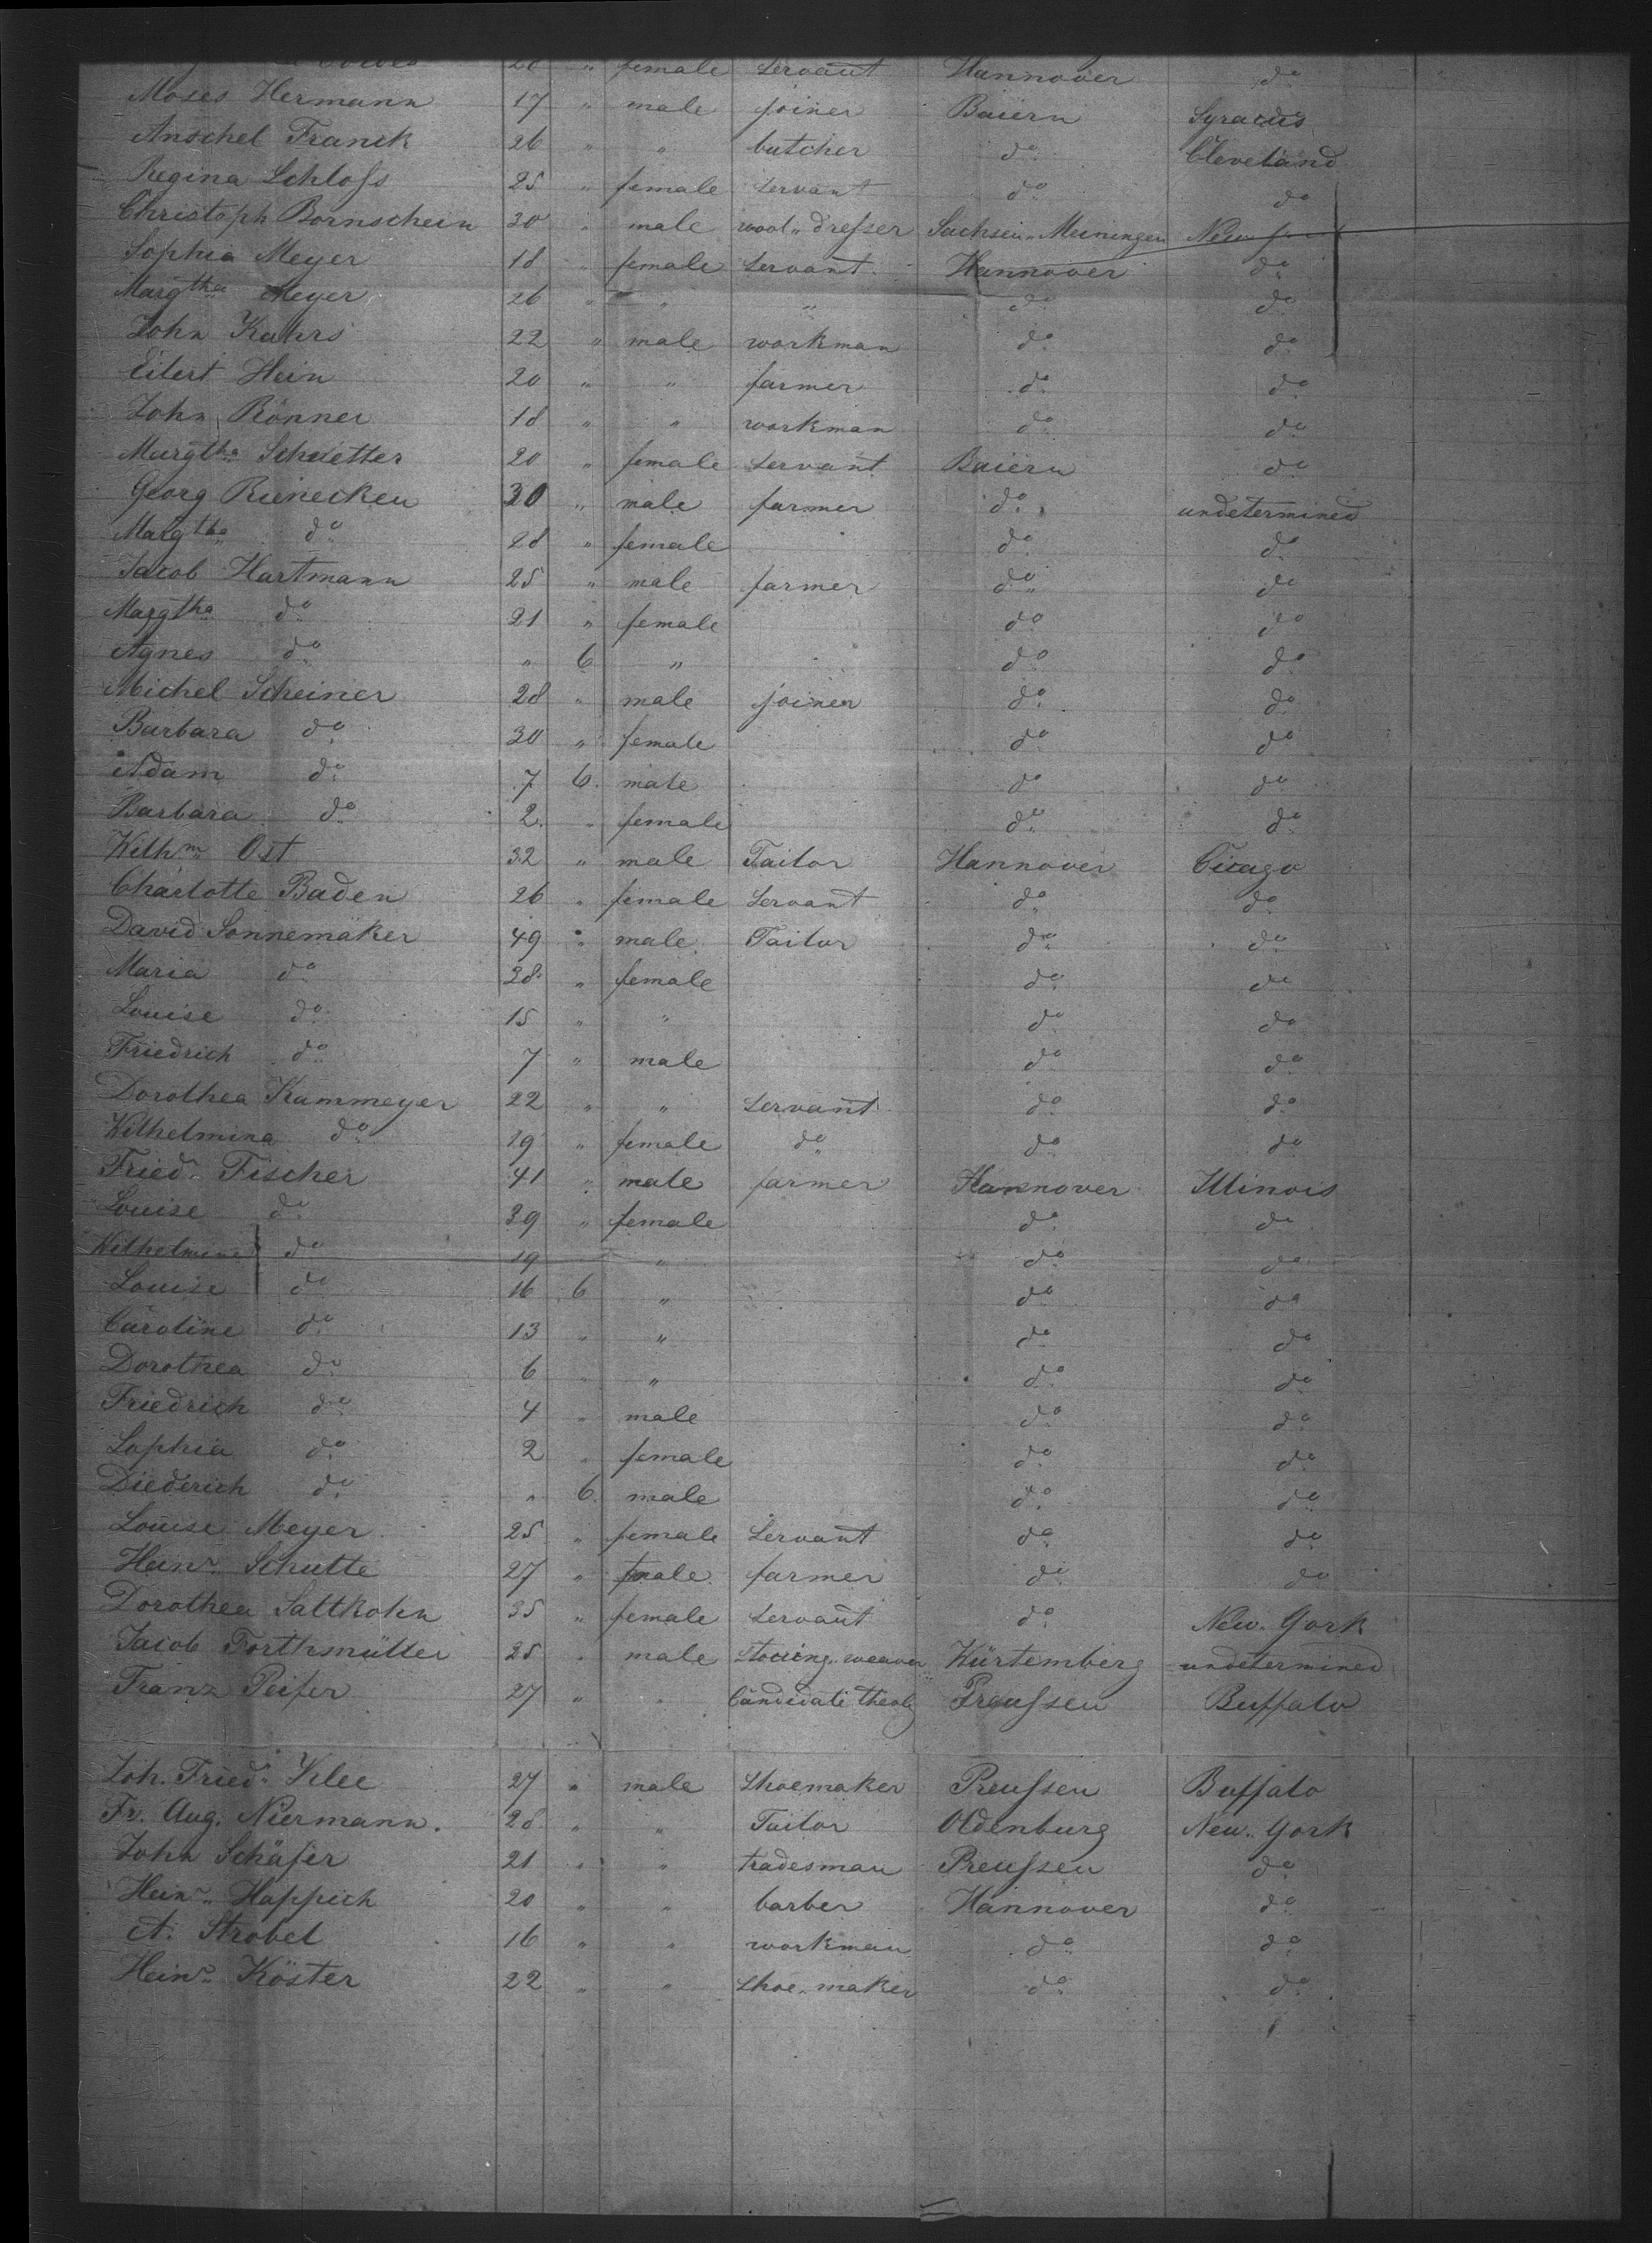 20 " female Servant Hannover do
Moses Hermann 17 " male joiner Baiern Syracus
Anschel Franck 26 " " butcher do Cleveland
Regina Schloss 25 " female Servant do do
Christoph Bornschein 30 " male wool-dresser Sachsen-Meiningen New
Sophia Meyer 18 " female Servant Hannover do
Margtha Meyer 26 " " " do do
John Kahrs 22 " male workman do do
Eilert Hein 20 " " farmer do do
John Rönner 18 " " workman do do
Margtha 20 " female Servant Baiern do
Georg Rienecken 30 " male farmer do undetermined
Margtha do 28 " female do do
Jacob Hartmann 25 " male farmer do do
Margtha do 21 " female do do
Agnes do " 6 " do do
Michel Scheiner 28 " male joiner do do
Barbara do 30 " female do do
Adam do 7 6 male do do
Barbara do 2 " female do do
Wilhm Ost 32 " male Tailor Hannover Cicago
Charlotte Baden 26 " female Servant do do
David Sonnemäker 49 " male Tailor do do
Maria do 28 " female do do
Louise do 15 " " do do
Friedrich do 7 " male do do
Dorothea Kammeyer 22 " " Servant do do
Wilhelmina do 19 " female do do do
Fried. Fischer 41 " male farmer Hannover Illinois
Louise do 39 " female do do
Wilhelmine do 19 " do do
Louise do 16 6 " do do
Caroline do 13 " " do do
Dorothea do 6 " " do do
Friedrich do 4 " male do do
Sophia do 2 " female do do
Diederich do " 6 male do do
Louise Meyer 25 " female Servant do do
Heinr. Schutte 27 " male farmer do do
Dorothea Saltkohn 35 " female Servant do New-York
Jacob Forthmüller 25 " male Stocking-weaver Würtemberg undetermined
Franz Peifer 27 " " Candidate theolg Preussen Buffalo
Joh. Friedr. Klee 27 " male Shoemaker Preussen Buffalo
Fr. Aug. Niermann. 28 " " Tailor Oldenburg New-York
John Schäfer 21 " " tradesman Preussen do
Heinr. Happich 20 " " barber Hannover do
A. Strobel 16 " " workman do do
Heinr. Köster 22 " " Shoe-maker do do